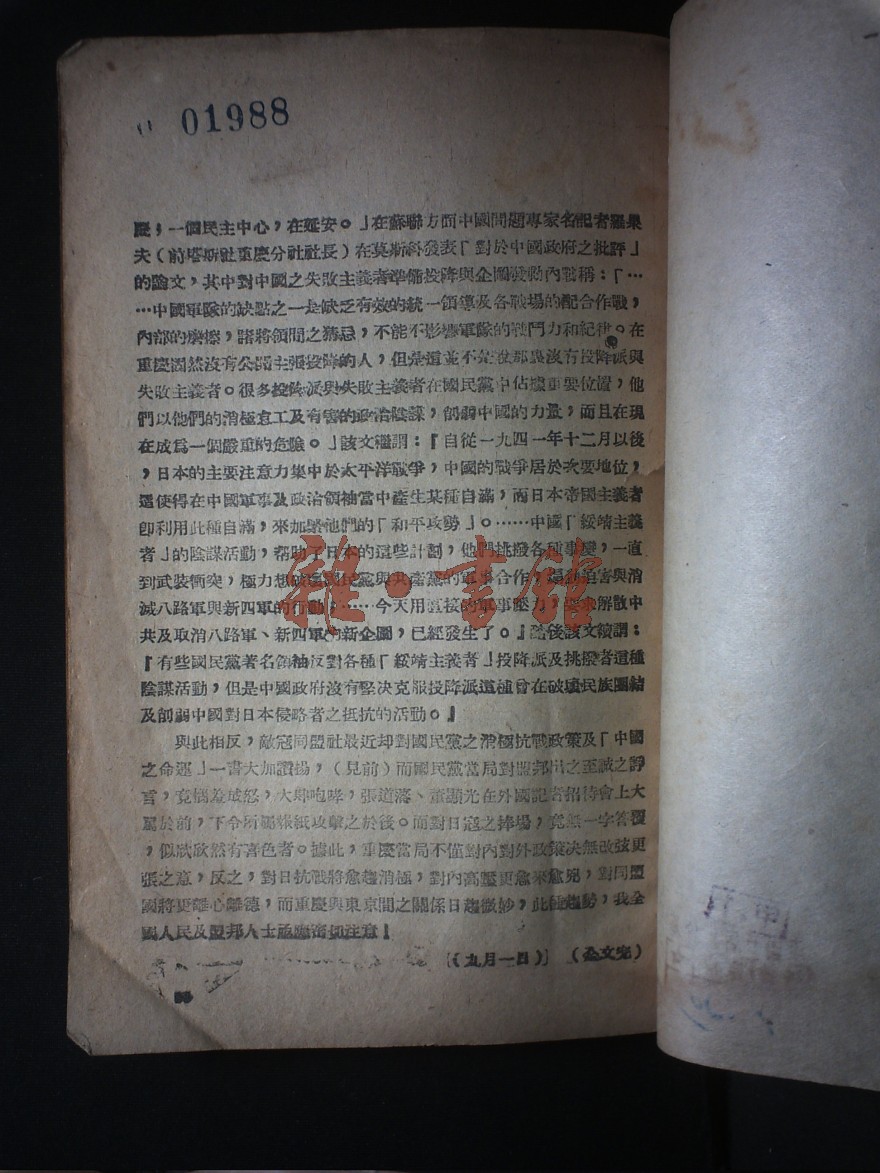 01988
慶,一個民主中心,在延安。」在蘇聯方面中國問題專家名記者羅果
夫(前塔斯社重慶分社社長)在莫斯科發表「對於中國政府之批評」
的論文,其中對中國之失敗主義者準備投降與企圖發動內戰稱:「…
…中國軍隊的缺點之一是缺乏有效的統一領導及各戰場的配合作戰,
內部的磨擦,諸將領間之猜忌,不能不影響軍隊的戰鬥力和紀律。在
重慶固然沒有公開主張投降的人,但是這並不是說那裏沒有投降派與
失敗主義者。很多投降派與失敗主義者在國民黨中佔據重要位置,他
們以他們的消極怠工及有害的政治陰謀,削弱中國的力量,而且在現
在成爲一個嚴重的危險。」該文繼謂:『自從一九四一年十二月以後
,日本的主要注意力集中於太平洋戰爭,中國的戰爭居於次要地位,
這使得在中國軍事及政治領袖當中產生某種自滿,而日本帝國主義者
卽利用此種自滿,來加緊他們的「和平攻勢」。……中國「綏靖主義
者」的陰謀活動,帮助了日本的這些計劃,他們挑撥各種事變,一直
到武裝衝突,極力想破壞國民黨與共產黨的軍事合作,煽動迫害與消
滅八路軍與新四軍的行動;……今天用直接的軍事壓力,要求解散中
共及取消八路軍、新四軍的新企圖,已經發生了。』然後該文續謂:
『有些國民黨著名領袖反對各種「綏靖主義者」投降派及挑撥者這種
陰謀活動,但是中國政府沒有堅决克服投降派這種會在破壞民族團結
及削弱中國對日本侵略者之抵抗的活動。』
與此相反,敵寇同盟社最近却對國民黨之消極抗戰政策及「中國
之命運」一書大加讚揚,(見前)而國民黨當局對盟邦出之至誠之諍
言,竟惱羞成怒,大肆咆哮,張道藩、董顯光在外國記者招待會上大
罵於前,下令所屬報紙攻擊之於後。而對日寇之捧場,竟無一字答覆
,似欣欣然有喜色者。據此,重慶當局不僅對內對外政策决無改弦更
張之意,反之,對日抗戰將愈趨消極,對內高壓更愈來愈兇,對同盟
國將更離心離德,而重慶與東京間之關係日趨微妙,此種趨勢,我全
國人民及盟邦人士亟應密切注意!
〔(九月一日)〕 (全文完)
雜·書館